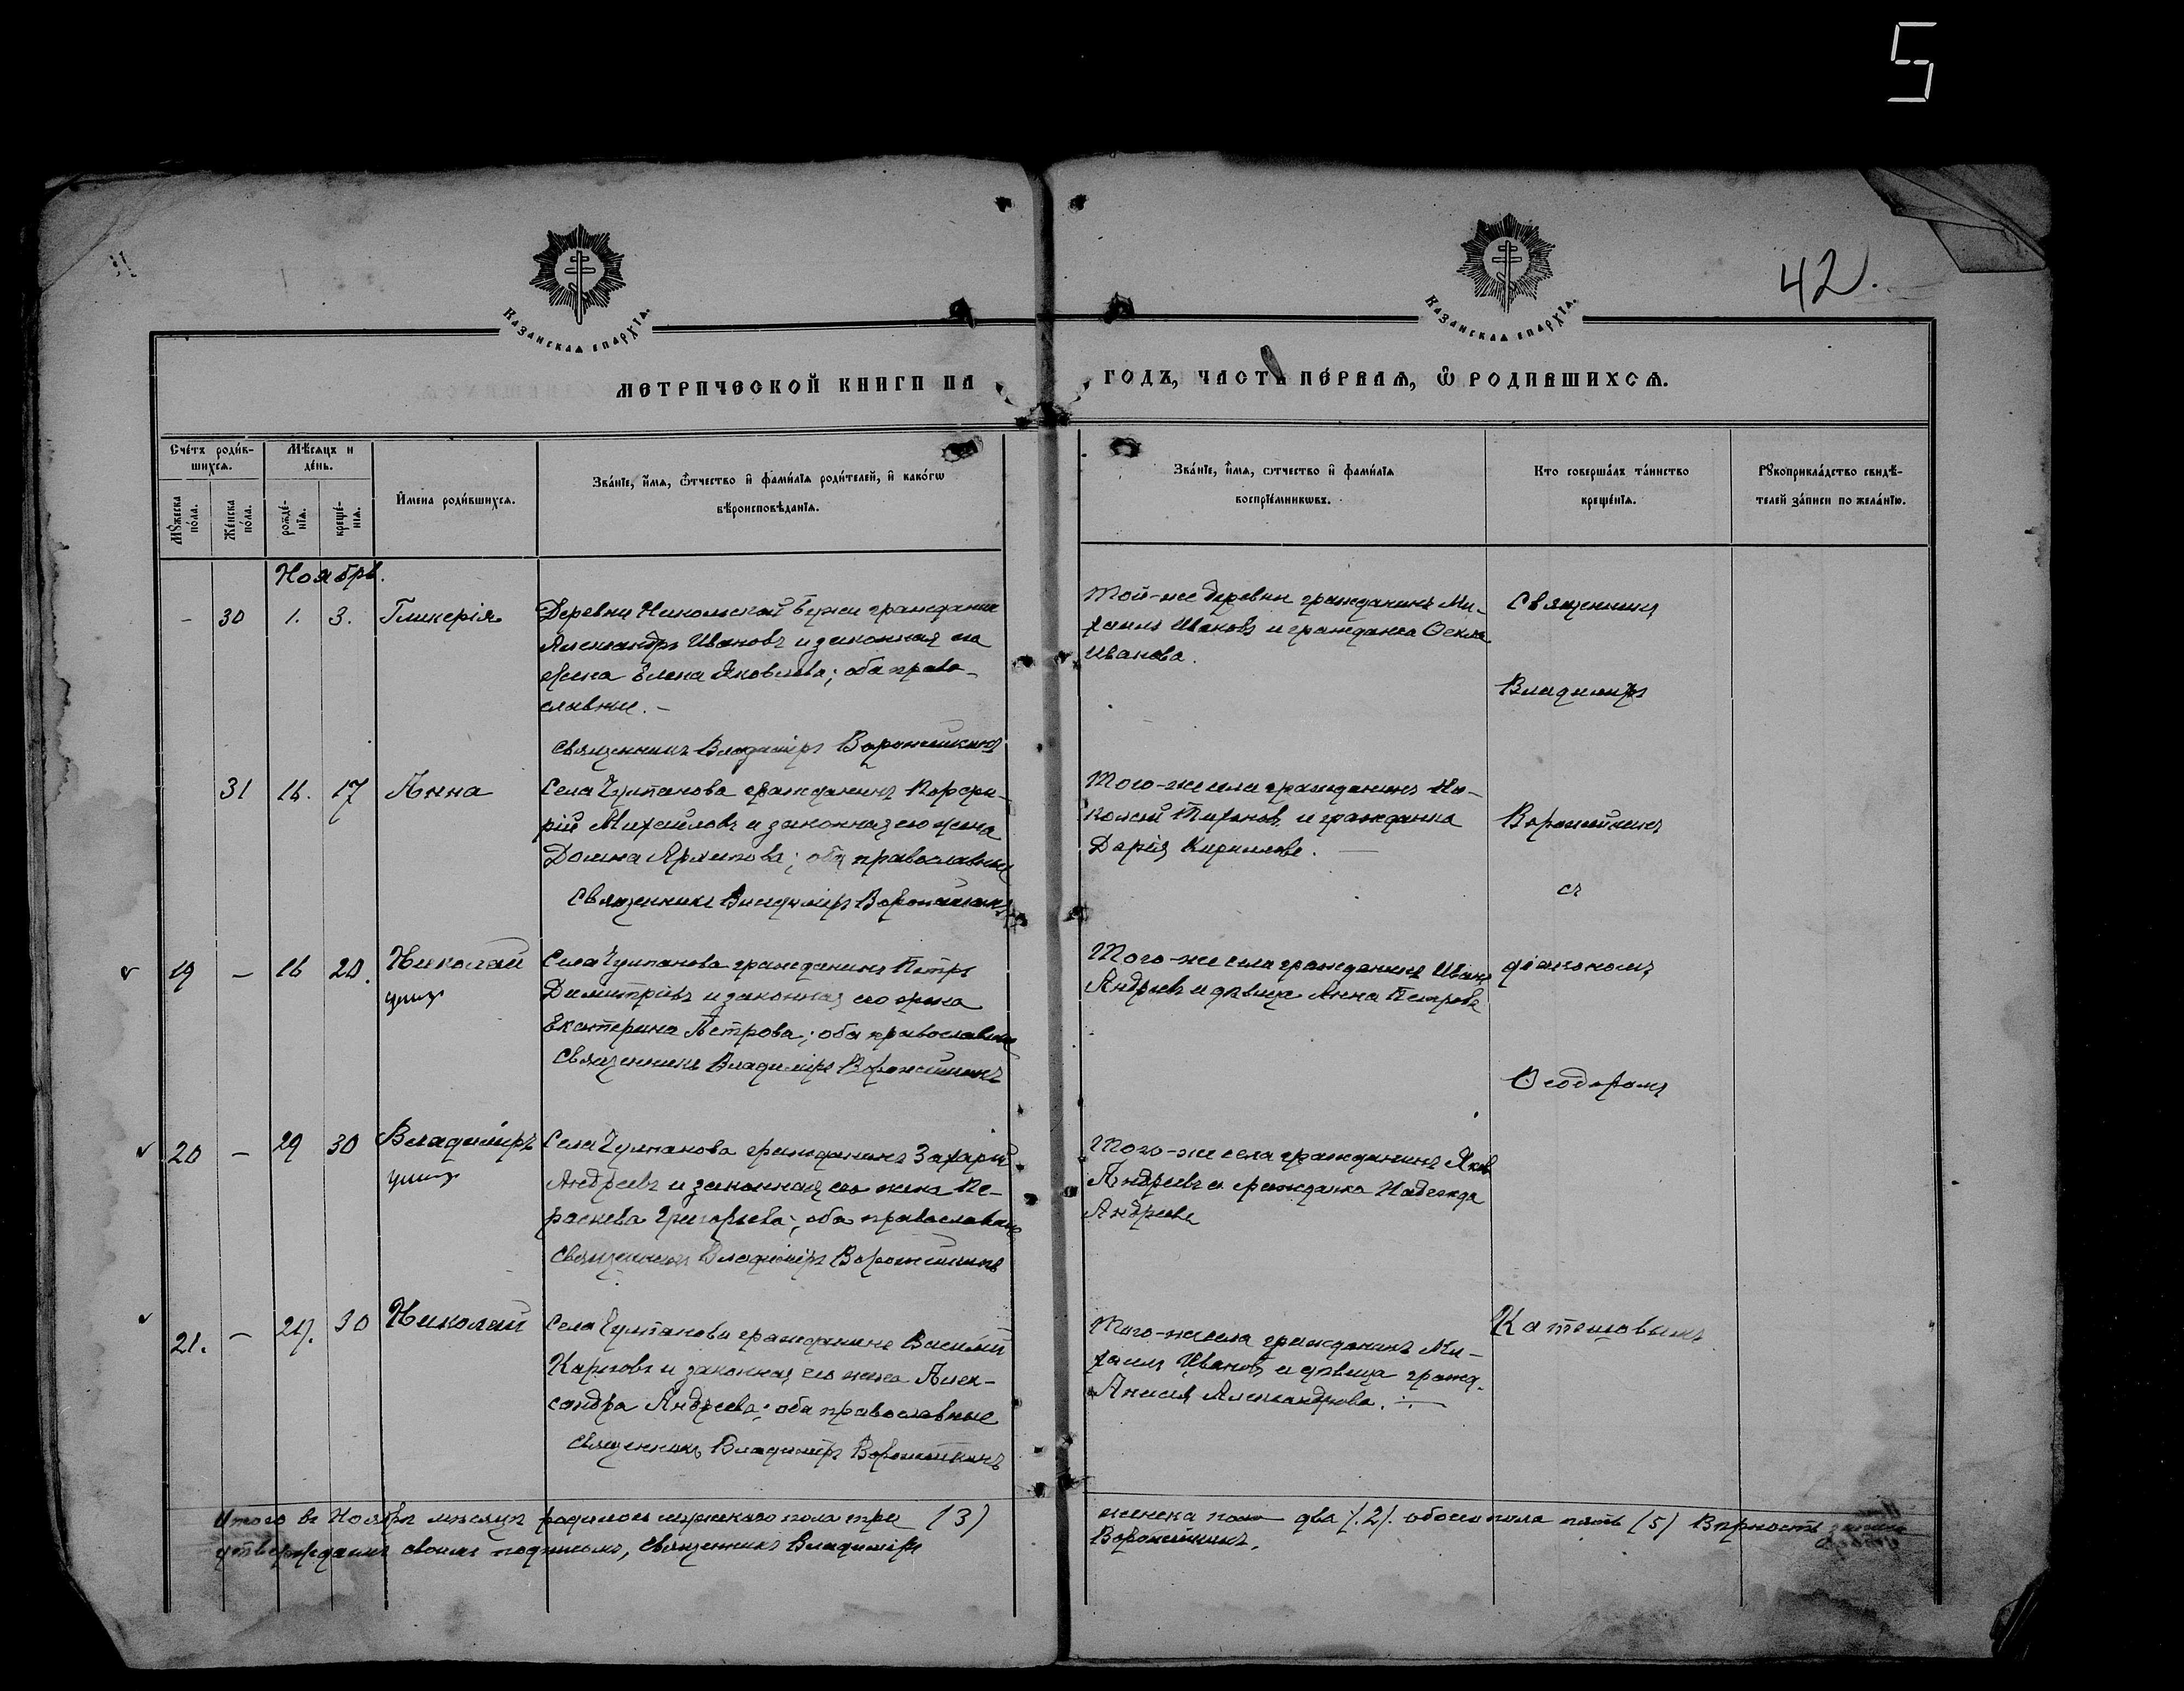 5
42.
Казанская епархія.
Казанская епархія.
МЕТРИЧЕСКОЙ КНИГИ НА
ГОДЪ, ЧАСТЬ ПЕ́РВАЯ, Ѽ РОДИВШИХСЯ.
Сче́тъ роди́в-
шихся.
Мѣ́сяцъ и
де́нь.
Мꙋ́жеска
по́ла.
Же́нска
по́ла.
рожде́-
нїя.
креще́-
нїя.
И́мена роди́вшихся.
Зва́нїе, и́мя, ѻ́тчество и҆ фами́лїя роди́телей, и҆ како́гѡ
вѣ́роисповѣ́данїя.
Зва́нїе, и҆́мя, ѻтчество и҆ фами́лїя
воспрїе́мникѡвъ.
Кто соверша́лъ та́инство
креще́нїя.
Рꙋкоприкла́дство свидѣ́-
телей за́писи по жела́нїю.
Ноябрь.
- 30 1. 3. Гликерія
Деревни Никольской гражданин
Александръ Ивановъ и законная его
жена Елена Яковлева; оба право-
славные. –
Священникъ Владиміръ Воронейкинъ
Той-же деревни гражданинъ Ми-
хаилъ Ивановъ и гражданка Ѳекла
Иванова.
31 16. 17 Анна
Села Чулпанова гражданинъ Порфи-
рій Михайловъ и законная его жена
Домна Архипова; оба православные
Священникъ Владиміръ Воронейкинъ
Того-же села гражданинъ Ни-
колай Тихонов, и гражданка
Дарія Кирилова. —
19 – 16 20. Николай
умеръ
Села Чулпанова гражданинъ Петръ
Димитріевъ и законная его жена
Екатерина Петрова; оба православные
Священникъ Владиміръ Воронейкинъ
Того-же села гражданинъ Иванъ
Андреевъ и дѣвица Анна Петрова
20 – 29 30 Владиміръ
умеръ
Села Чулпанова гражданинъ Захарій
Андреевъ и законная его жена Па-
раскева Григорьева; оба православные
Священникъ Владиміръ Воронейкинъ
Того-же села гражданинъ Яков
Андреевъ и гражданка Надежда
Андреева
21. – 29. 30 Николай
Села Чулпанова гражданинъ Василій
Карповъ и законная его жена Алек-
сандра Андреева; оба православные
Священникъ Владиміръ Воронейкинъ
Того-же села гражданинъ Ми-
хаилъ Ивановъ и дѣвица гражд.
Анисія Александрова. —
Священникъ
Владиміръ
Воронейкинъ
съ
діакономъ
Ѳеодоромъ
Итого въ Ноябрѣ мѣсяцѣ родилось мужскаго пола три (3)
женска пола два (2) обоего пола пять (5) Вѣрность записи
утверждаемъ своимъ подписомъ, Священникъ Владиміръ
Воронейкинъ.